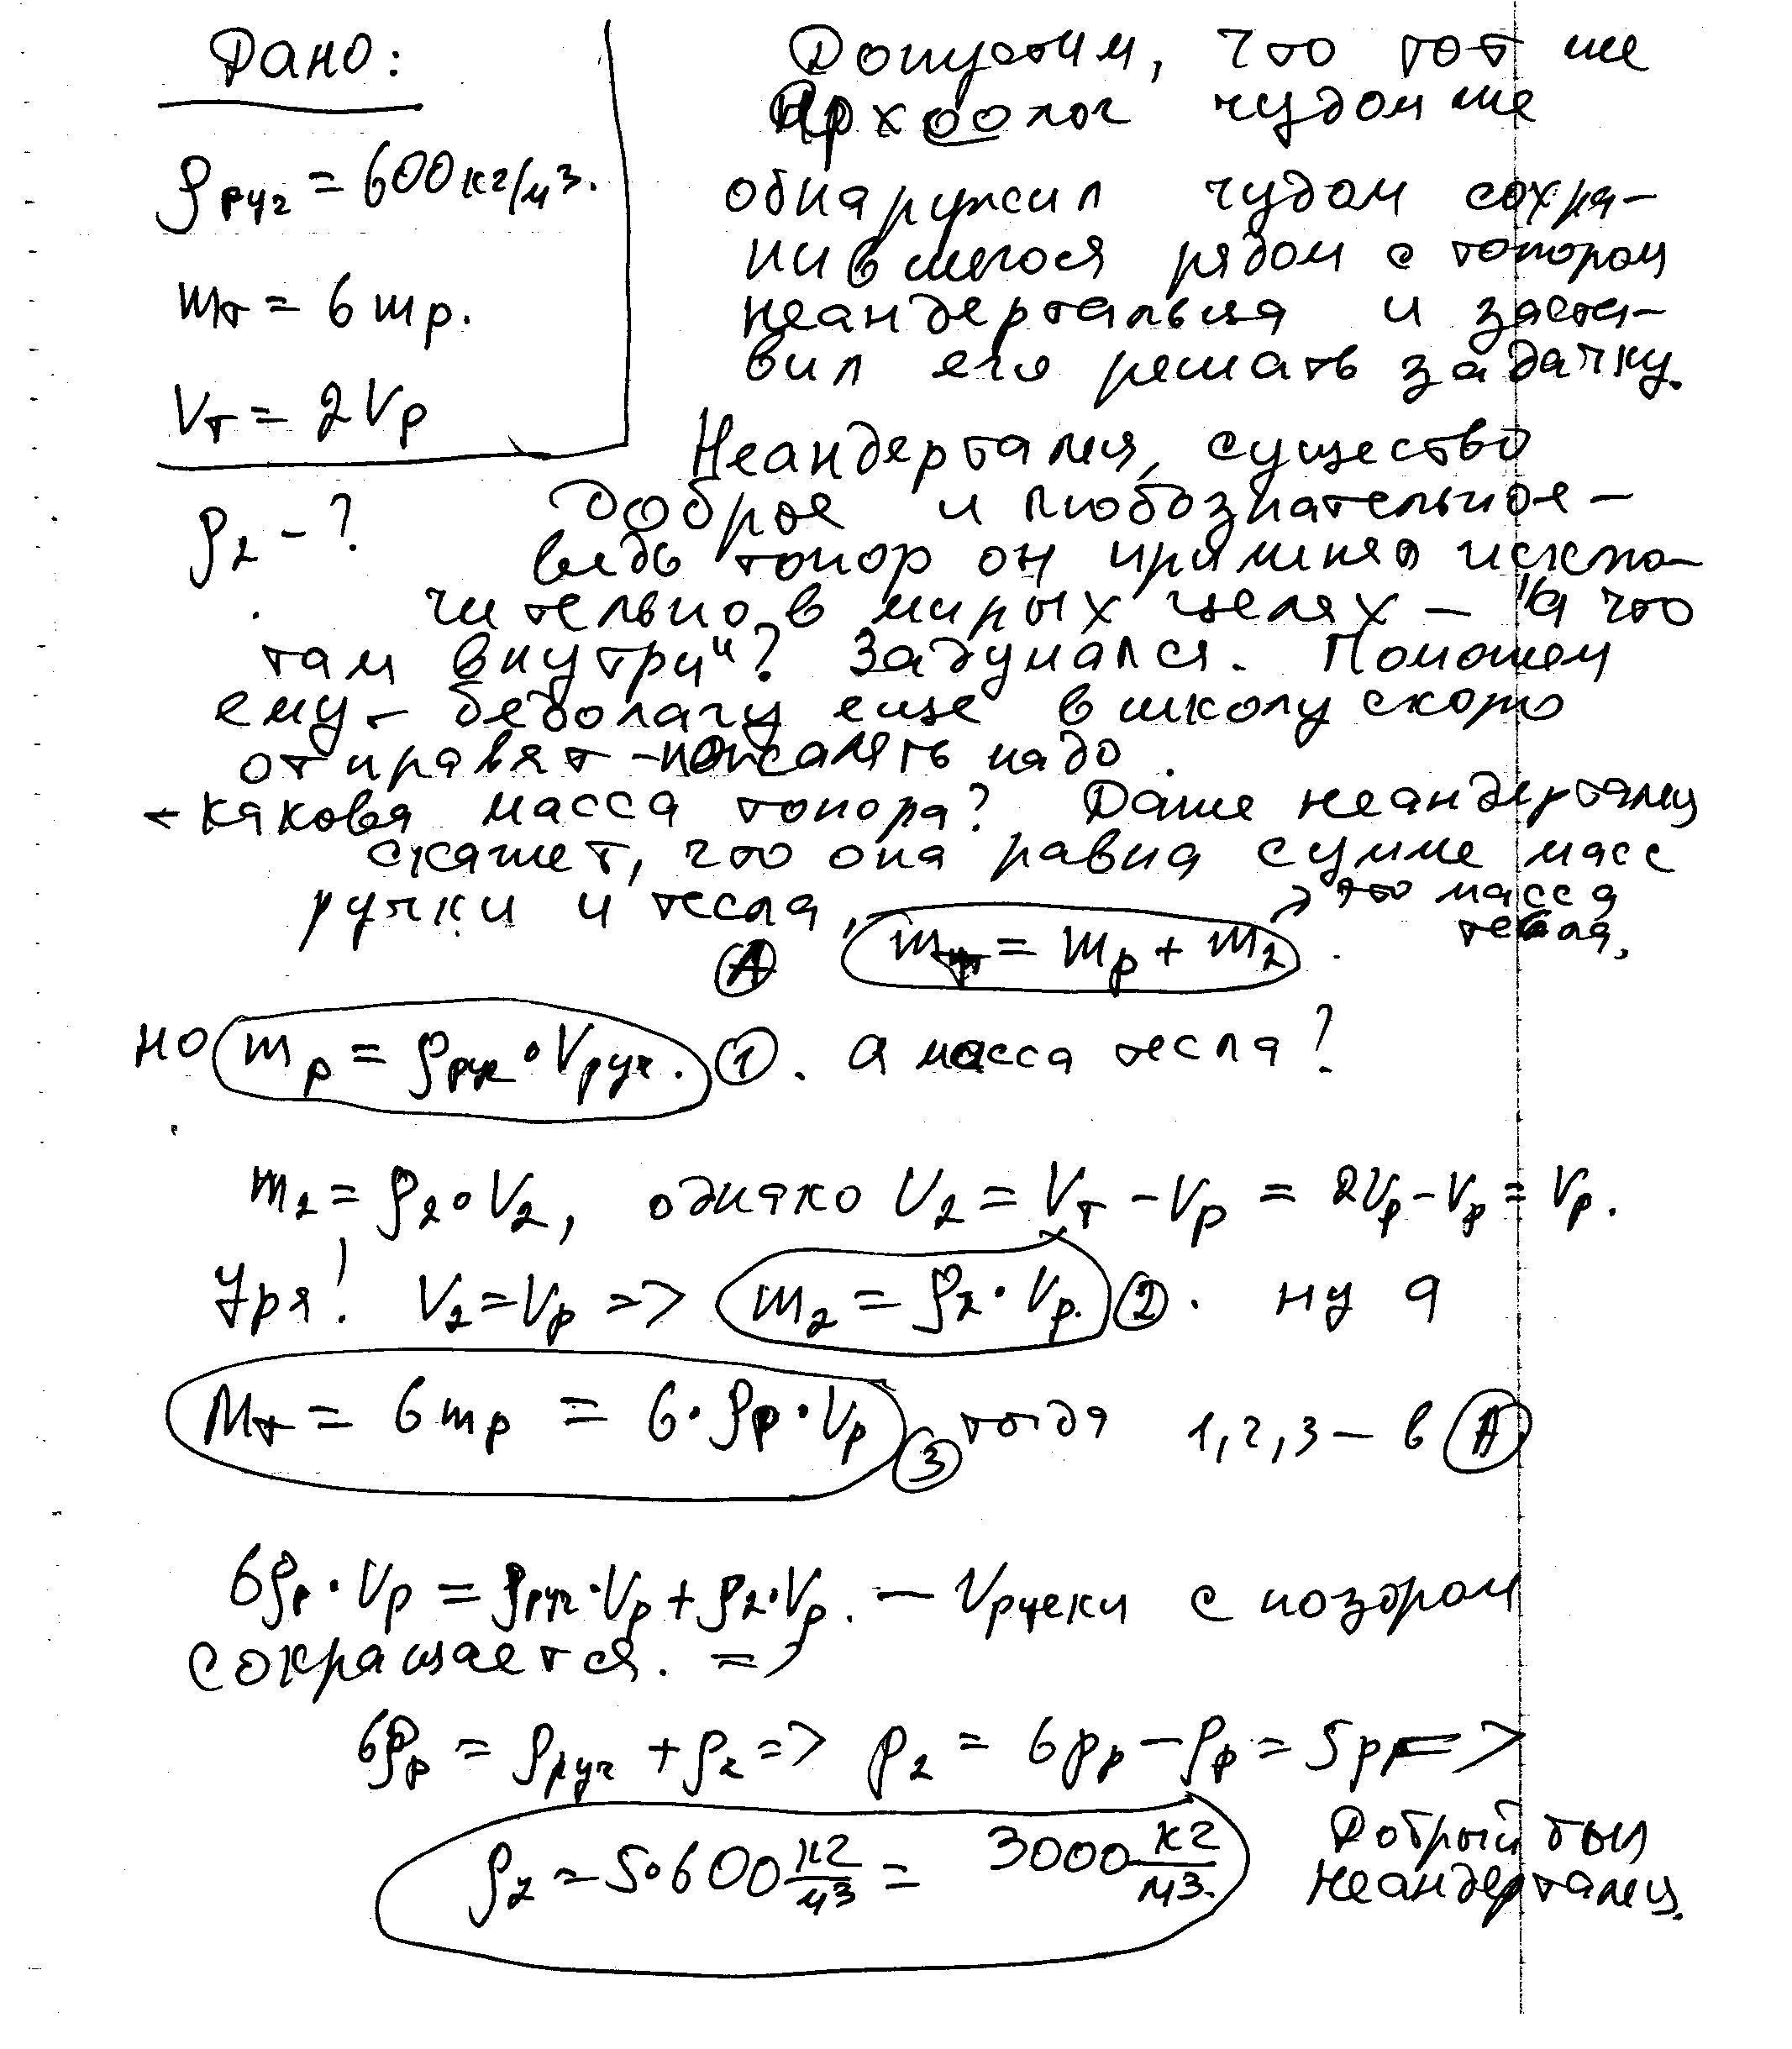 Дано:
ρруч = 600 кг/м³.
mт = 6 mр.
Vт = 2Vр
ρ2 - ?
Допустим, что тот же
Археолог чудом же
обнаружил чудом сохра-
нившегося рядом с топором
неандертальца и заста-
вил его решать задачку.
Неандерталец, существо
доброе и любознательное -
ведь топор он применял исклю-
чительно в мирных целях - "а что
там внутри"? Задумался. Поможем
ему - бедолагу еще в школу скоро
отправят - надо.
- какова масса топора? Даже неандерталец
скажет, что она равна сумме масс
ручки и тесла,
→ это масса
тесла.
Ⓐ mт = mр + m2.
но mр = ρруч · Vруч. ①. а масса тесла?
m2 = ρ2 · V2, однако V2 = Vт - Vр = 2Vр - Vр = Vр.
Уря! V2 = Vр => m2 = ρ2 · Vр. ②. ну а
Mт = 6mр = 6 · ρр · Vр ③ тогда 1, 2, 3 - в Ⓐ
6ρр · Vр = ρруч · Vр + ρ2 · Vр. - Vручки с позором
сокращается. =>
6ρр = ρруч + ρ2 => ρ2 = 6ρр - ρр = 5ρр =>
ρ2 = 5·600 кг/м3 = 3000 кг/м3.
Добрый был
неандерталец.